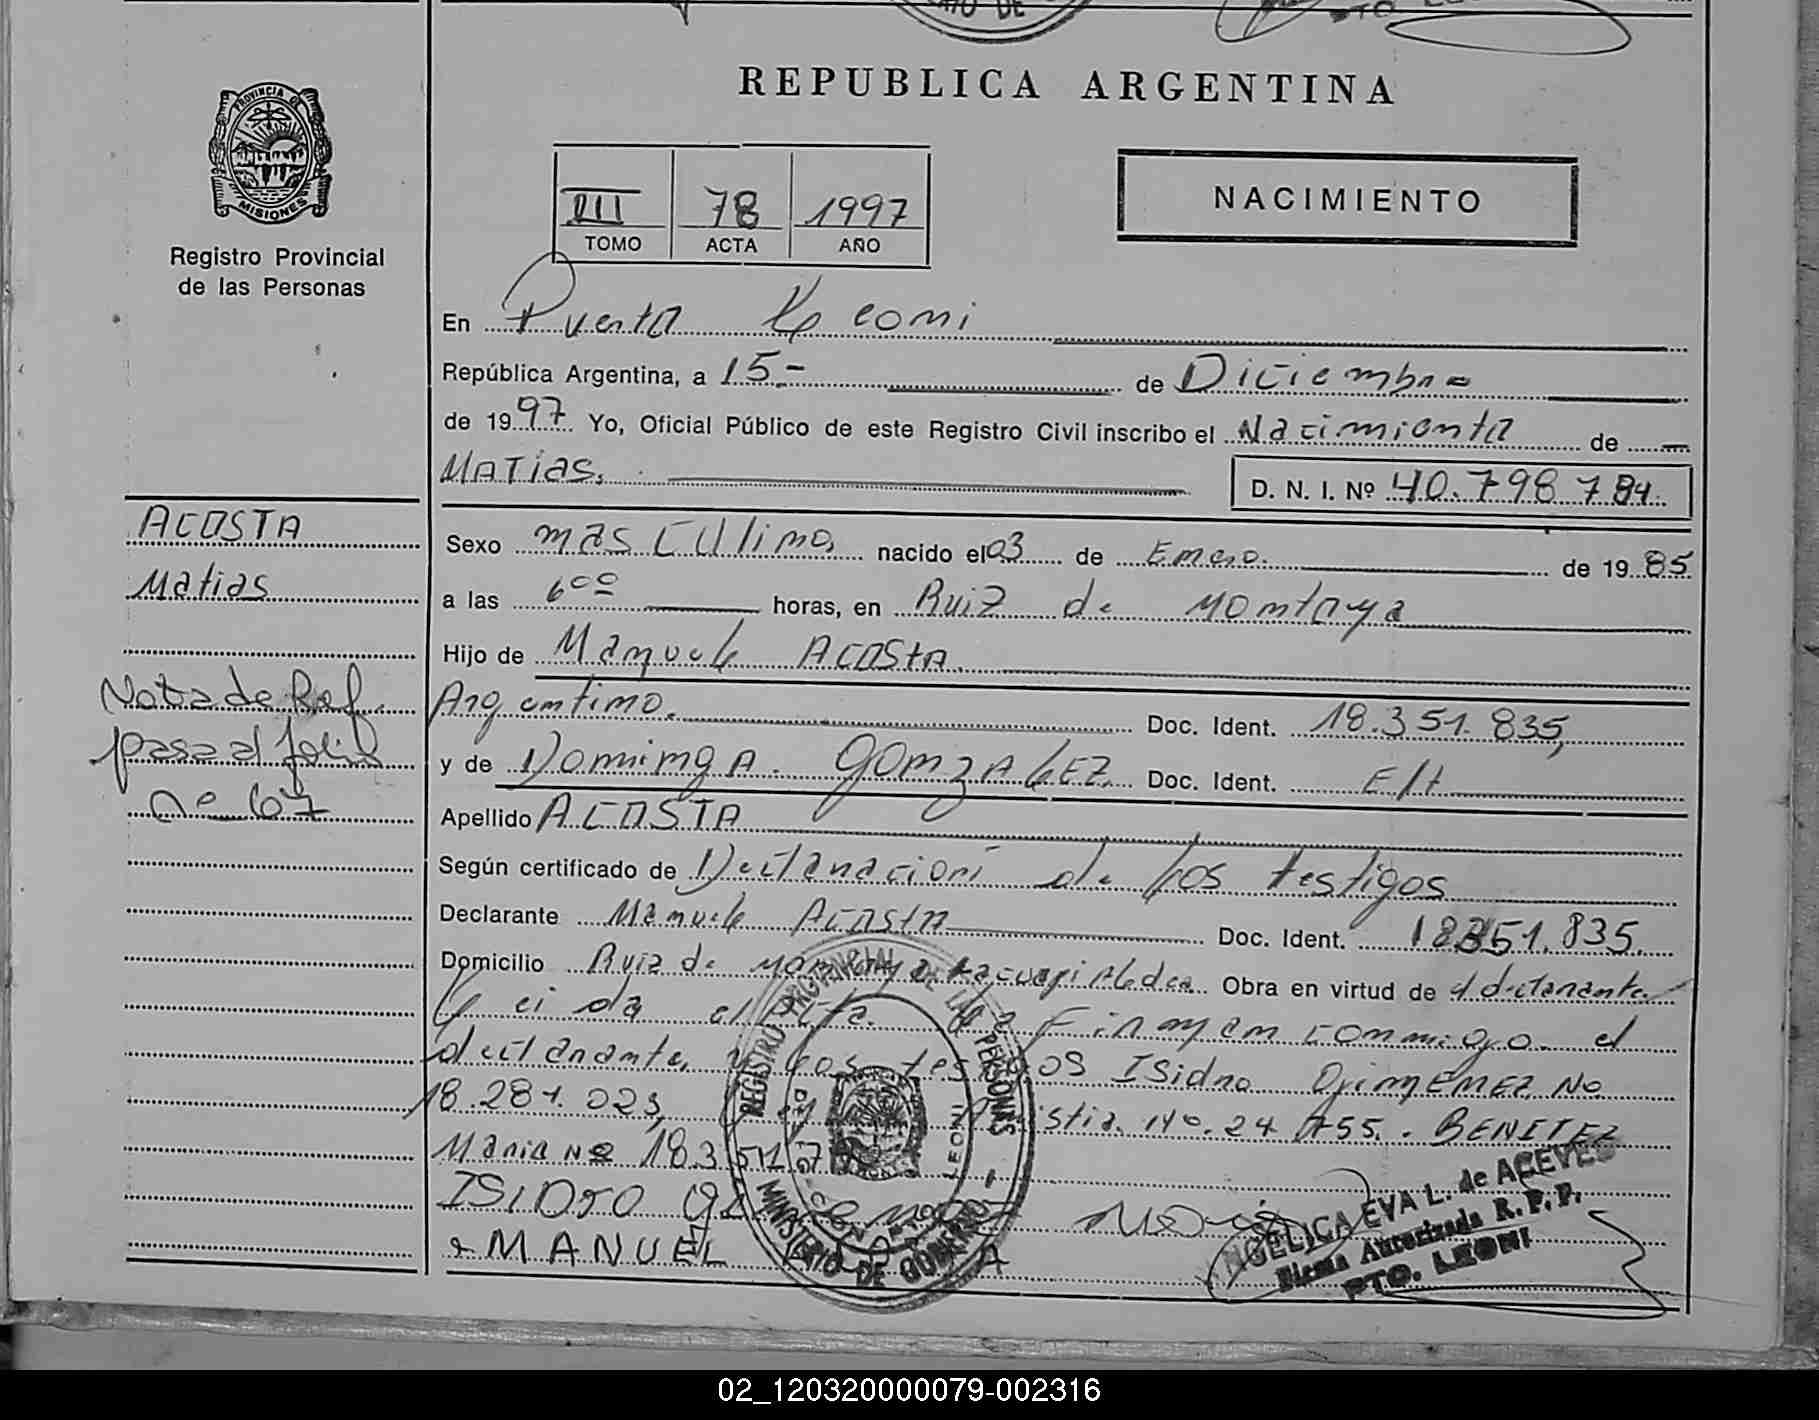 REPUBLICA ARGENTINA
PROVINCIA DE
MISIONES
Registro Provincial
de las Personas
III 78 1997
TOMO ACTA AÑO
NACIMIENTO
En Puerto Leoni
República Argentina, a 15- de Diciembre
de 1997 Yo, Oficial Público de este Registro Civil inscribo el Nacimiento de
MATias. D. N. I. Nº 40.798 784
ACOSTA
Matias
Nota de Ref.
pasa al folio
nº 67
Sexo masculino nacido el 03 de Enero. de 1985
a las 6 00 horas, en Ruiz de Montoya
Hijo de Manuel Acosta.
Argentino. Doc. Ident. 18.351.835,
y de Dominga. GONZALEZ Doc. Ident. E/t
Apellido ACOSTA
Según certificado de Declaración de los testigos
Declarante Manuel Acosta Doc. Ident. 18351.835.
Domicilio Ruiz de Montoya Aldea. Obra en virtud de el declarante
Leida el Acta. La Firman conmigo el
declarante, y los testigos Isidro GIMENEZ No
18.281.023, Nº.24 755. BENITEZ
Maria Nº 18.351
ISIDRO
MANUEL
REGISTRO PROVINCIAL DE LAS PERSONAS
MINISTERIO DE GOBIERNO
LEONI
ANGELICA EVA L. de ACEVEDO
Firma Autorizada R. P. P.
PTO. LEONI
02_120320000079-002316